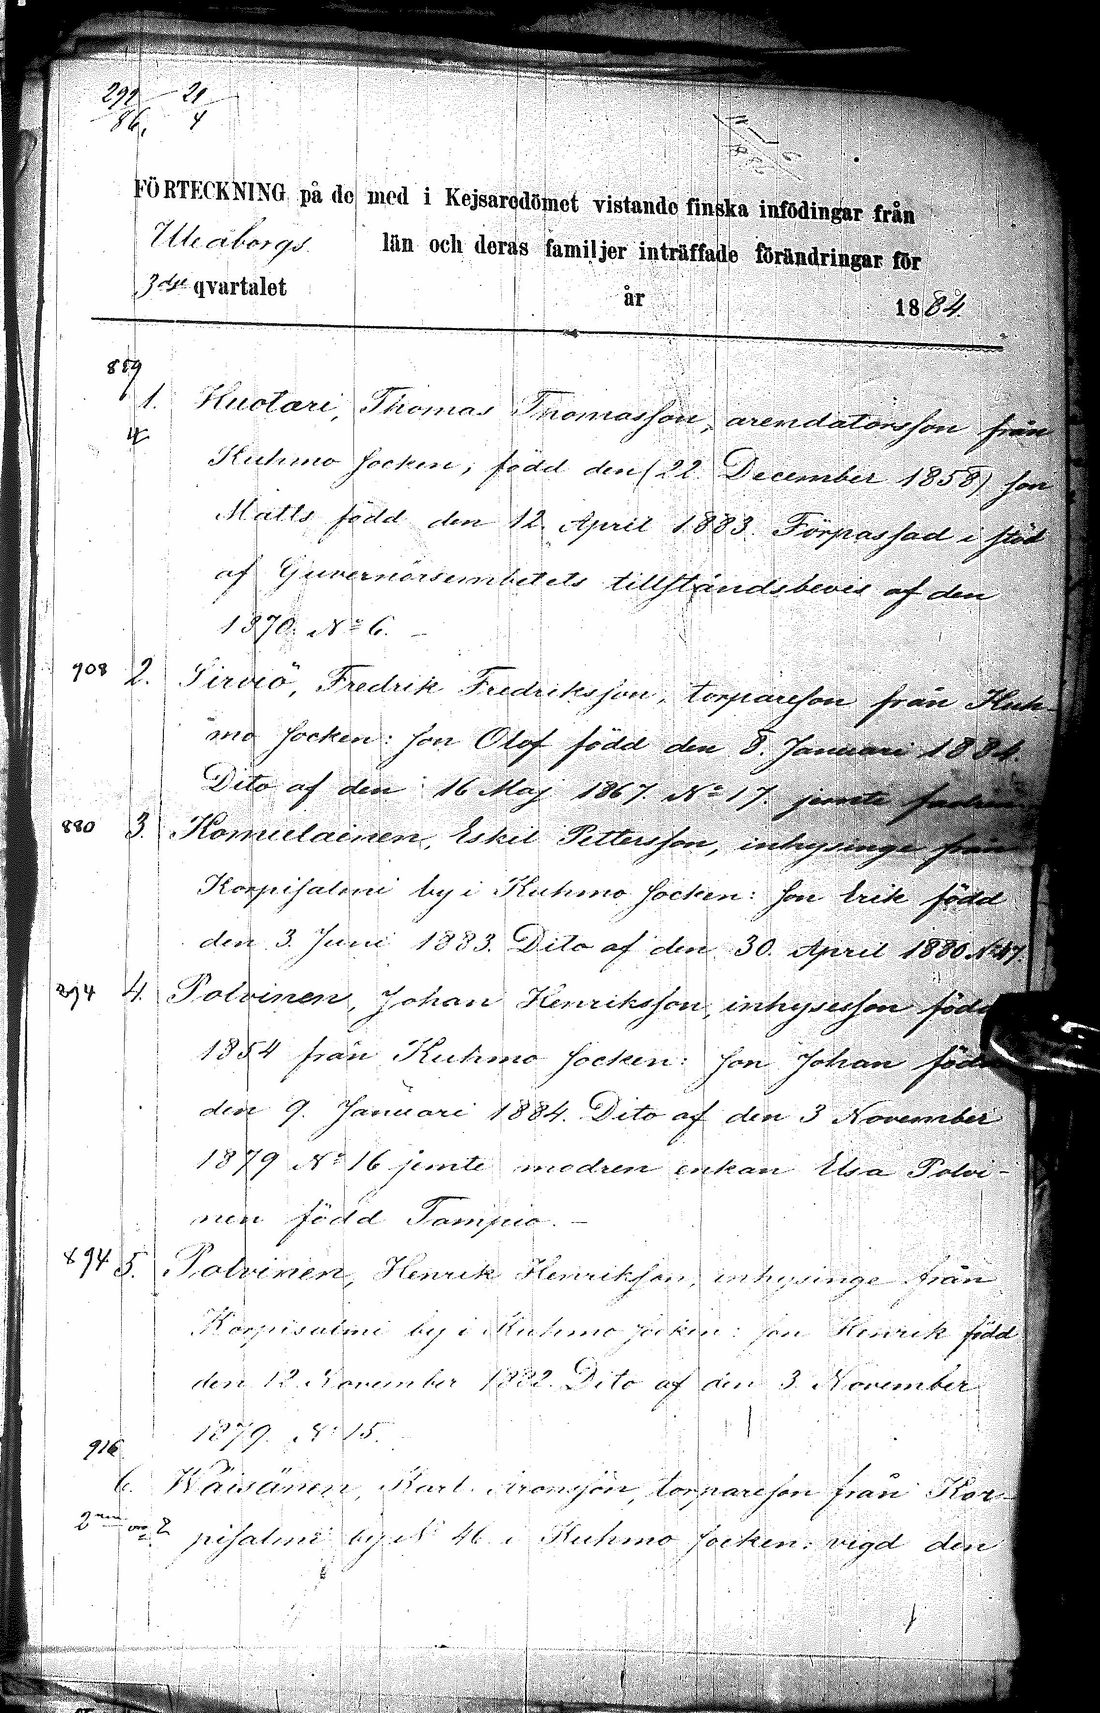 292 21
86. 4
FÖRTECKNING på de med i Kejsaredömet vistande finska infödingar från
Uleåborgs län och deras familjer inträffade förändringar för
3dje qvartalet år 1884.
889
1. Huotari, Thomas Thomasson, arendatorsson från
Kuhmo socken; född den (22 December 1858) son
Matts född den 12. April 1883. Förpassad i stöd
af Guvernörsembetets tillståndsbevis af den
1870. No 6.
908 2. Sirviö, Fredrik Fredriksson, torpareson från Kuh-
mo socken: son Olof född den 8. Januari 1884.
Dito af den 16 Maj 1867. No 17. jemte
880 3. Komulainen, Eskil Pettersson, inhysinge från
Korpisalmi by i Kuhmo socken: son Erik född
den 3. Juni 1883. Dito af den 30. April 1880 No 47.
894 4. Polvinen, Johan Henriksson, inhysesson född
1854 från Kuhmo socken: son Johan född
den 9. Januari 1884. Dito af den 3 November
1879 No 16 jemte modren enkan Elsa Polvi-
nen född Tampio.
894 5. Polvinen, Henrik Henriksson, inhysinge från
Korpisalmi by i Kuhmo socken: son Henrik född
den 12. November 1882. Dito af den 3. November
1879. No 15.
916
6. Wäisänen, Karl Aronsson, torpareson från Kor-
pisalmi by No 46 i Kuhmo socken: vigd den